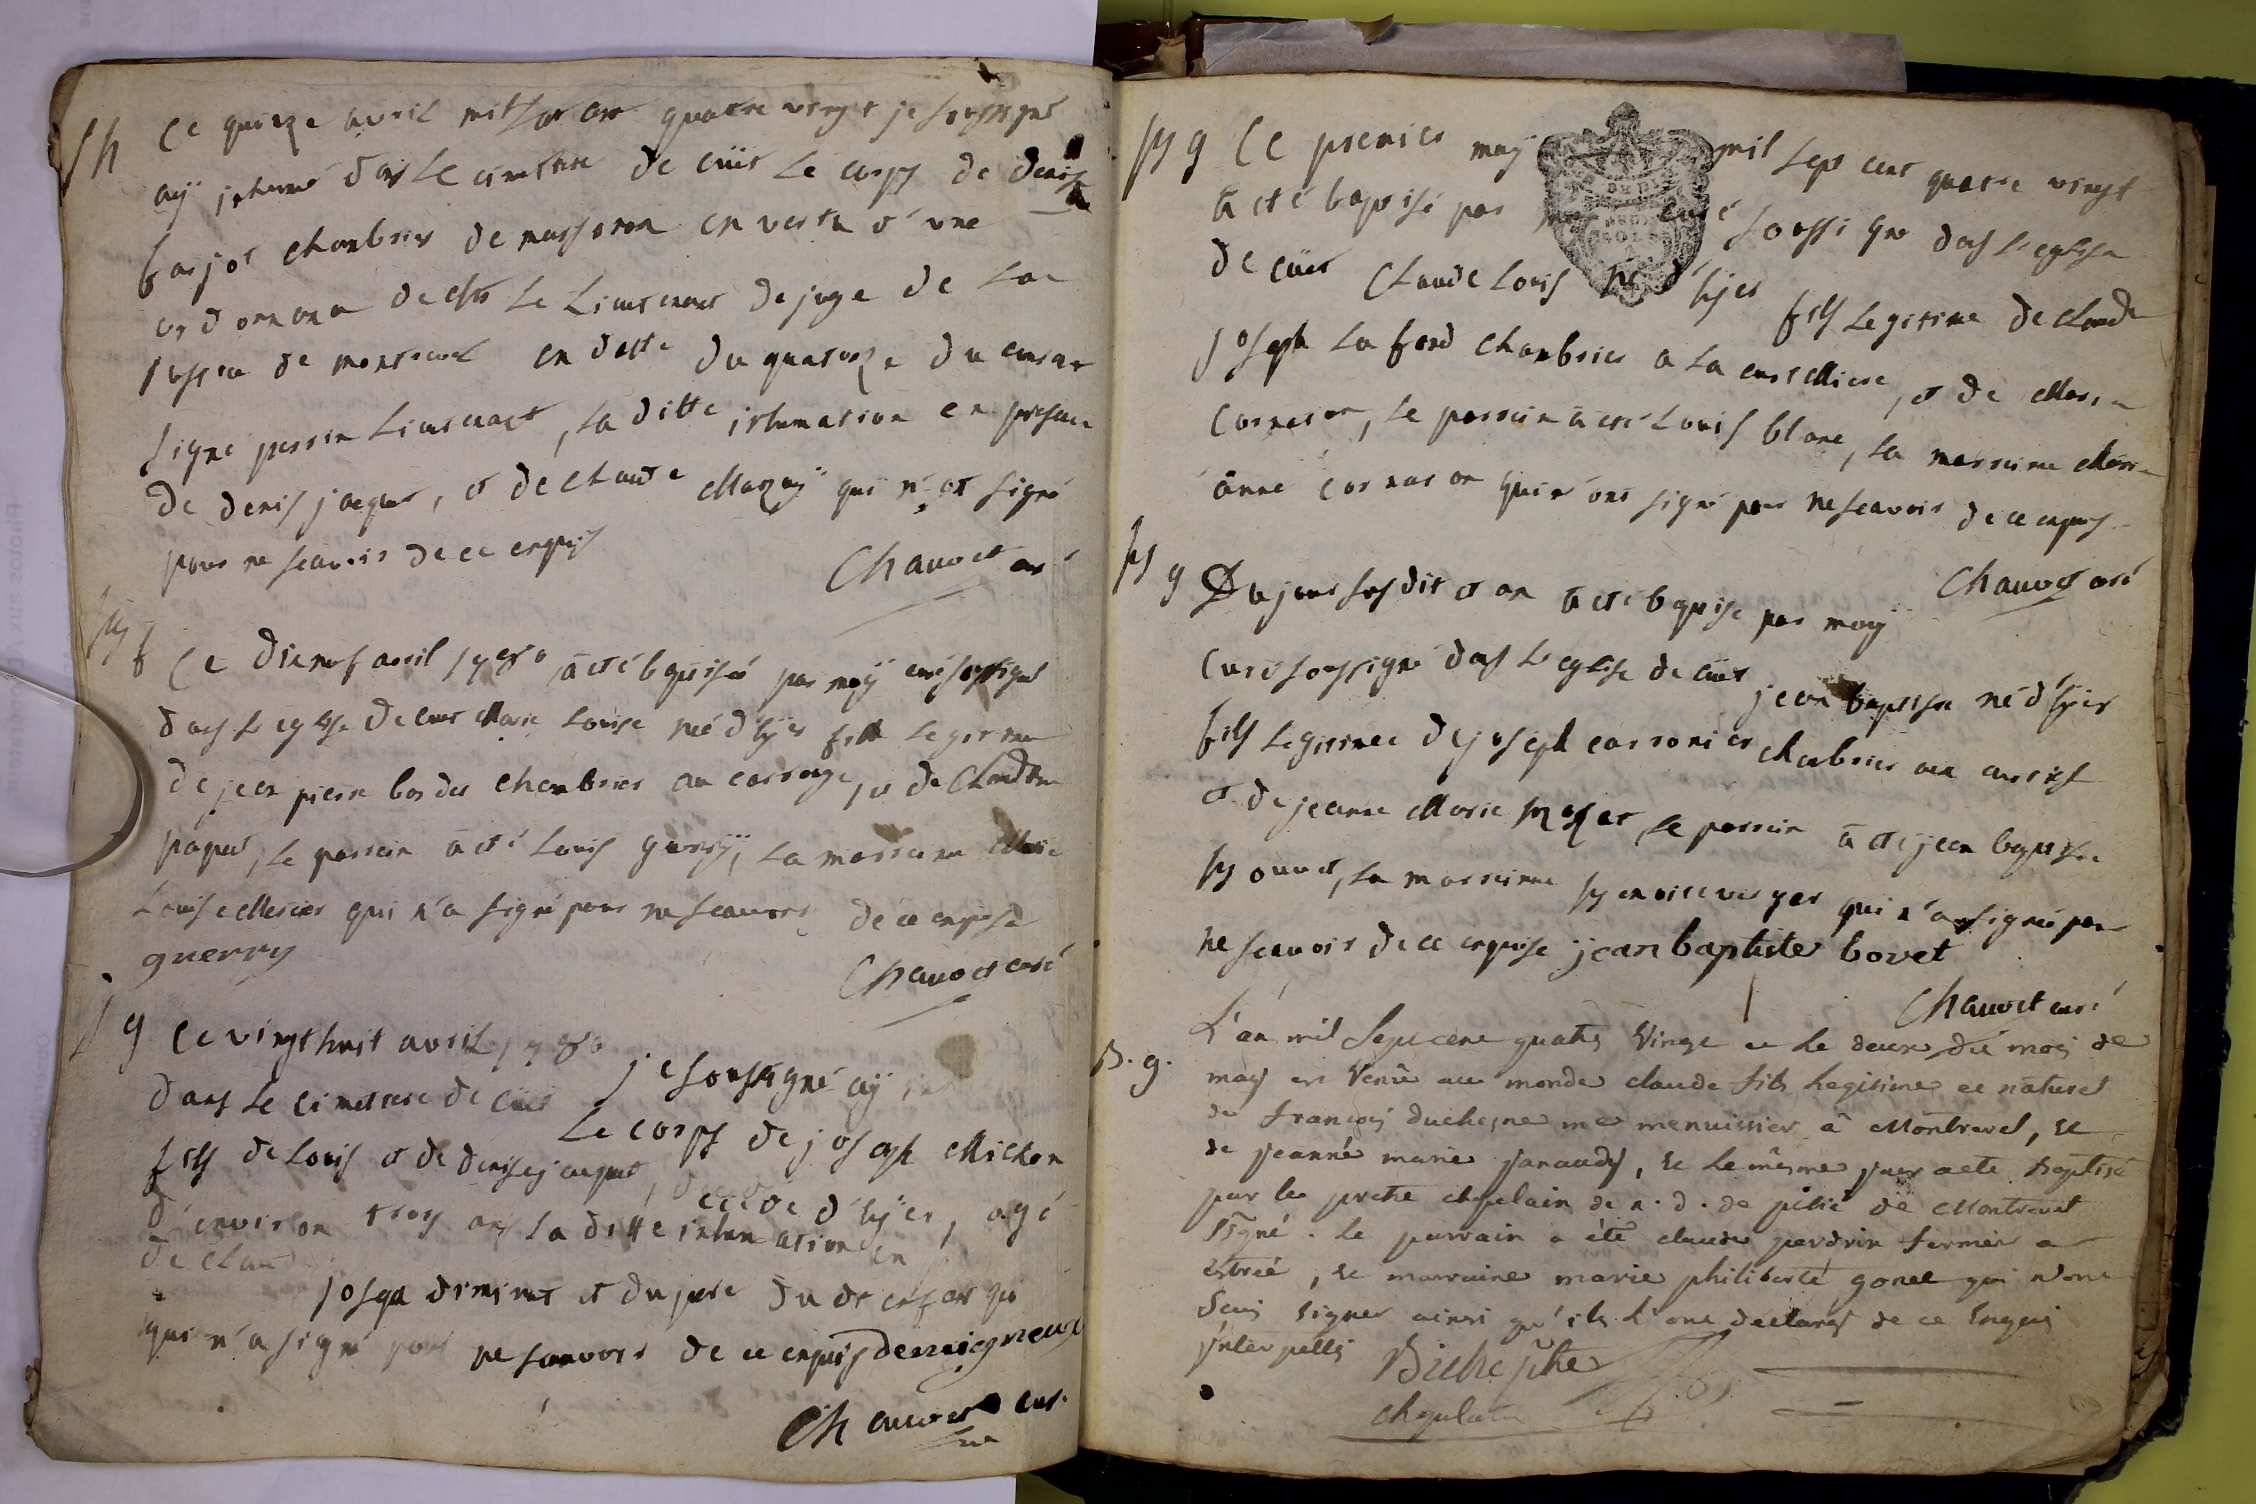 Ce quinze avril mil sept cent quatre vingt je soussigné
aÿ inhumé dans le cimetiere de cüet le corps de denise
farjot chambrier de masseron en vertu d'une
ordonnance de Mr le Lieutenant de juge de la
justice de montrevel en datte du quatorze du courant
signé perrin Lieutenant, la ditte inhumation en presence
de denis jaquet, et de claude Mazuÿ qui n'ont signé
pour ne scavoir de ce enquis
Chauvet curé
b f
Ce dixneuf avril 1780 a été baptisée par moÿ curé soussigné
dans l'eglise de cuet Marie Louise née d'hÿer fille legitime
de jean pierre bordet chambrier au carrouge, et de Claudine
paput, le parrein a été Louis guerrÿ, la marreine Marie
Louise Mercier qui n'a signé pour ne scavoir de ce enquise
guerry
Chauvet curé
g
Ce vingt huit avril 1780
je soussigné aÿ
dans le cimetiere de cüet
le corps de joseph Michon
fils de Louis et de denise jaquet, decedé d'hÿer, agé
d'environ trois ans la ditte inhumation en
de claude
joseph et du pere du dt enfant qui
qui n'a signé pour ne scavoir de ce enquis
Chauvet curé
b g
Ce premier maÿ mil sept cent quatre vingt
a été baptisé par moÿ curé soussigné dans l'eglise
de cüet Claude Louis né d'hÿer fils legitime de claude
joseph la fond chambrier a la curtelliere, et de Marie
Cornaton, le parrein a été Louis blanc, la marreine Marie
anne Cornaton qui n'ont signé pour ne scavoir de ce enquis
Chauvet curé
b g
Du jour susdit et an a été baptisé par moÿ
Curé soussigné dans l'eglise de cüet jean baptiste né d'hÿer
fils legitime de joseph carronier chambrier aux
et de jeanne Marie, le parrein a été jean baptiste
bouvet, la marreine benoite verger qui n'a signé pour
ne scavoir de ce enquise jean baptiste bovet
Chauvet curé
B. g.
L'an mil Sept cent quatre Vingt et le deux du mois de
may est Venû au monde claude fils Legitime et naturel
de françois duchesne me menuissier â Montrevel, et
de jeanne marie janaudy, et le même jour a ete Baptisé
par le pretre chapelain de n. d. de pitié de Montrevel
signé. le parrain a été claude perdrix fermier a
etreé, et marraine marie philiberte gonet qui n'ont
Sceu signer ainsi qu'ils l'ont declarés de ce Enquis
interpellés
Biche ptre
chapelain